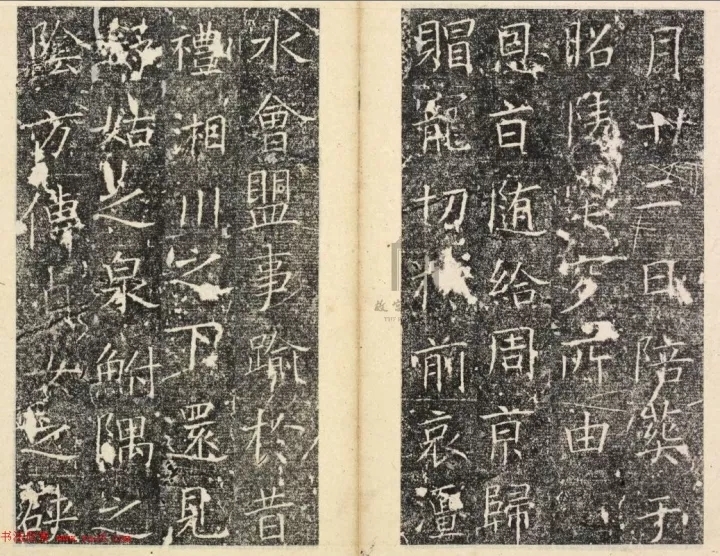 月廿二日陪葬于
昭陵穸所由
恩旨随給周京歸
賵寵切前哀澶
水會盟事踰於昔
禮湘川之下還見
姑之泉鮒隅之
陰方傳女之硤